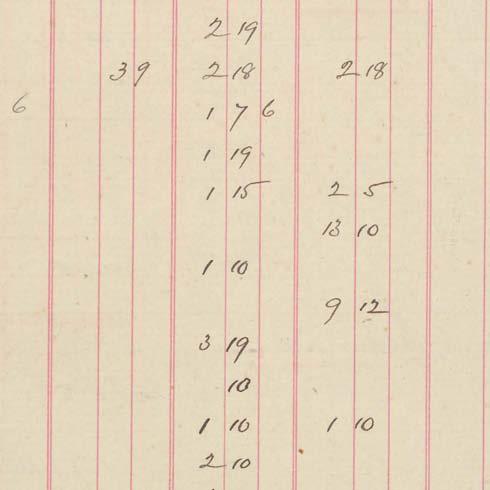 2 19
3 9 2 18 2 18
6 1 7 6
1 19
1 15 2 5
13 10
1 10
9 12
3 19
10
1 10 1 10
2 10